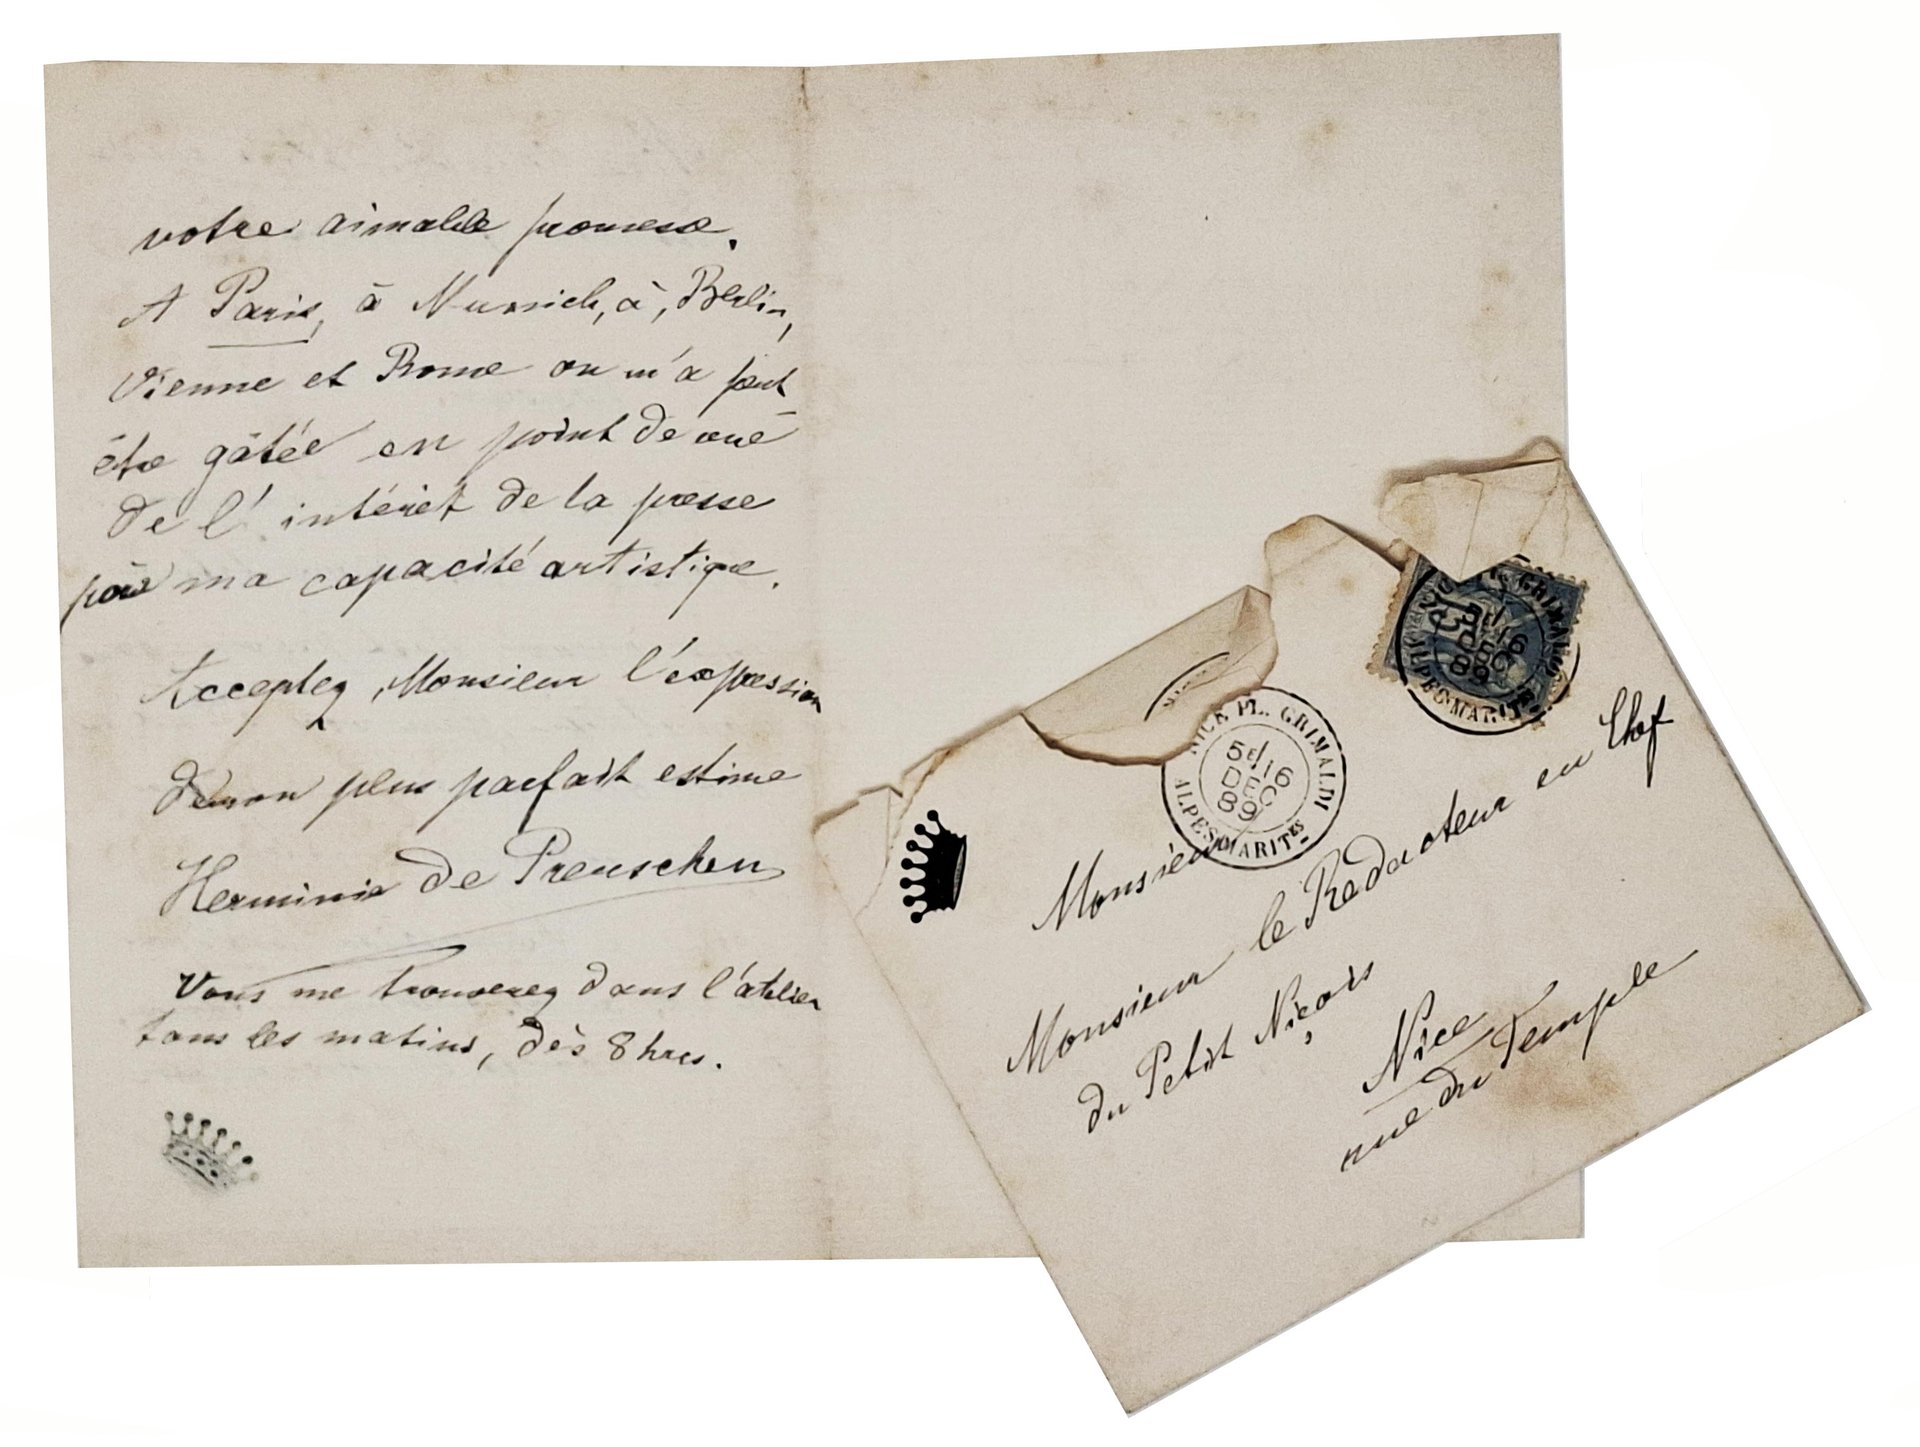 votre aimable promesse.
A Paris, à Munich, à, Berlin,
Vienne et Rome on m'a peut
être gâtée en point de vue
de l'intérêt de la presse
pour ma capacité artistique.
Acceptez, Monsieur l'expression
de mon plus parfait estime
Herminie de Preuschen
Vous me trouverez dans l'atelier
tous les matins, dès 8 hres.
NICE PL. GRIMALDI
5e/16
DEC
89
ALPES MARITES
NICE PL. GRIMALDI
5e/16
DEC
89
ALPES MARITES
Monsieur
Monsieur le Redacteur en Chef
du Petit Niçois
Nice
rue du Temple